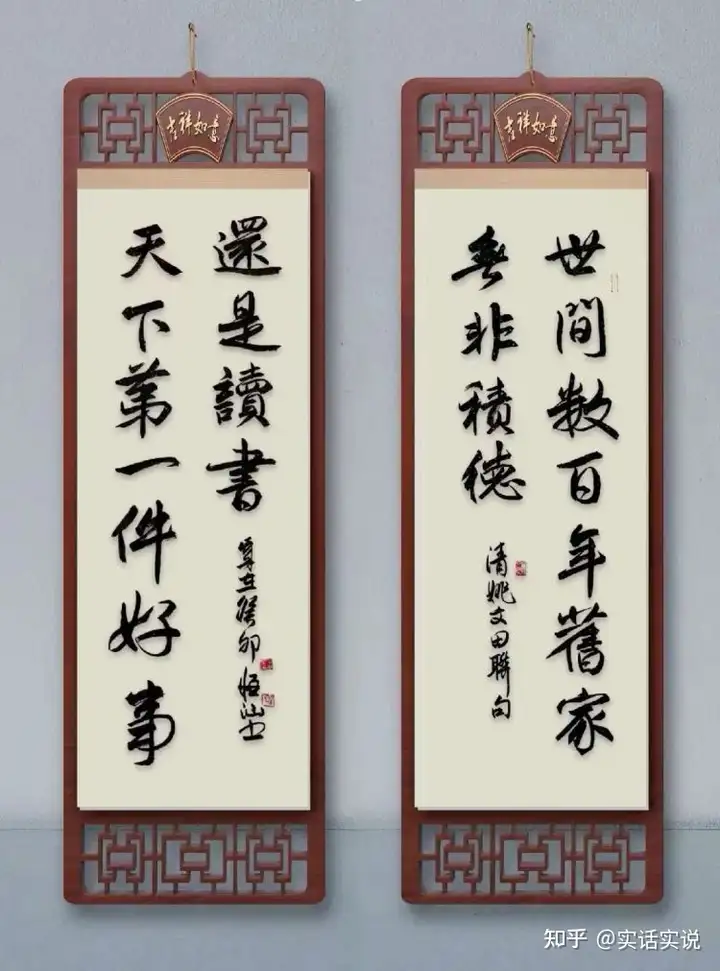 吉祥如意
世間数百年舊家
無非積德
清姚文田聯句
吉祥如意
天下第一件好事
還是讀書
歲在癸卯
知乎 @实话实说